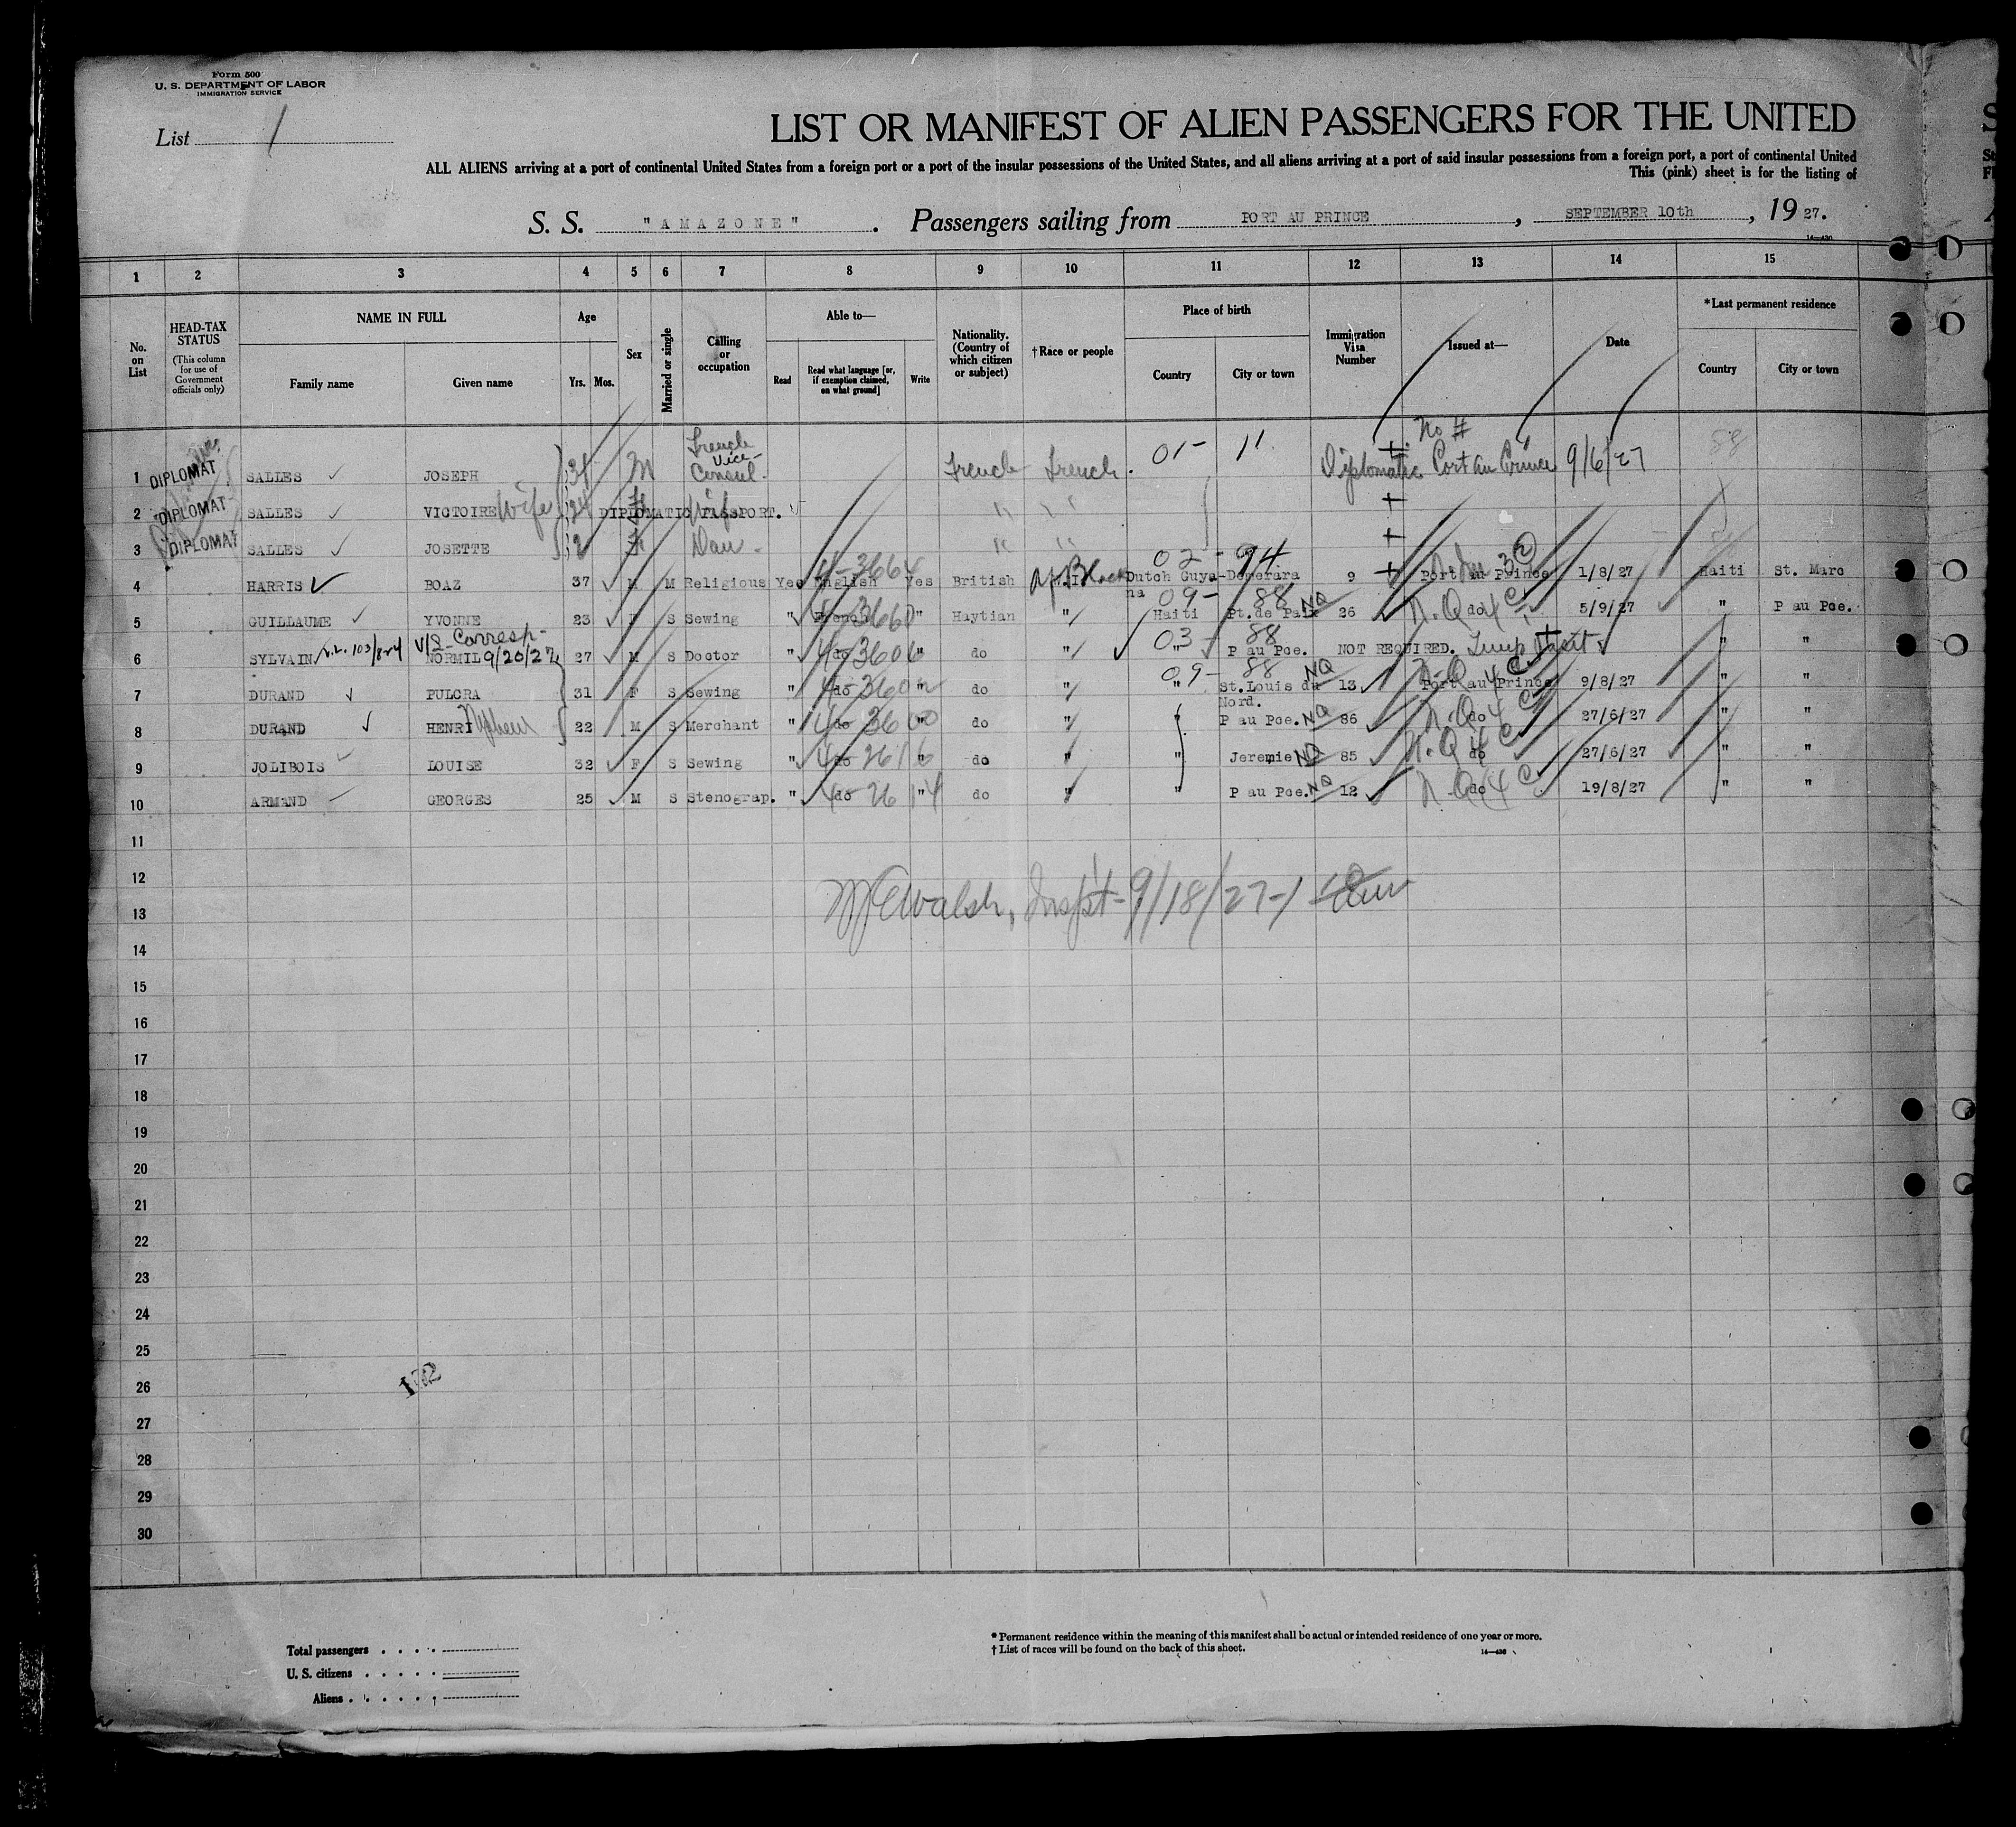 Form 500
U. S. DEPARTMENT OF LABOR
IMMIGRATION SERVICE
List 1
LIST OR MANIFEST OF ALIEN PASSENGERS FOR THE UNITED
ALL ALIENS arriving at a port of continental United States from a foreign port or a port of the insular possessions of the United States, and all aliens arriving at a port of said insular possessions from a foreign port, a port of continental United
This (pink) sheet is for the listing of
S. S. "AMAZONE". Passengers sailing from PORT AU PRINCE, SEPTEMBER 10th, 1927.
14—430
1 2 3 4 5 6 7 8 9 10 11 12 13 14 15
No. on List
HEAD-TAX STATUS (This column for use of Government officials only)
NAME IN FULL Family name Given name
Age Yrs. Mos.
Sex
Married or single
Calling or occupation
Able to— Read Read what language [or, if exemption claimed, on what ground] Write
Nationality. (Country of which citizen or subject)
†Race or people
Place of birth Country City or town
Immigration Visa Number
Issued at—
Date
*Last permanent residence Country City or town
1 DIPLOMAT SALLES JOSEPH 31 M French Vice-Consul French French. 01- 11 Diplomatic No # Port au Prince 9/6/27 88
2 DIPLOMAT SALLES VICTOIRE Wife 24 F Wife DIPLOMATIC PASSPORT. " "
3 DIPLOMAT SALLES JOSETTE 2 F Dau - " "
02 - 94
4 HARRIS BOAZ 37 M M Religious Yes English 4-3664 Yes British Af. Black Dutch Guyana Demerara 9 Port au Prince 1/8/27 Haiti St. Marc
09- 88
5 GUILLAUME YVONNE 23 F S Sewing " French 3660 " Haytian " Haiti Pt.de Paix NQ 26 N.Q. do 4 C 5/9/27 " P au Pce.
V/S-Corresp- 03- 88
6 SYLVAIN NORMIL 9/20/27 27 M S Doctor " do 3606 " do " " P au Pce. NOT REQUIRED. Temp Visit " "
09- 88
7 DURAND PULCRA 31 F S Sewing " do 360 " do " " St.Louis du Nord. NQ 13 N.Q. 4 C Port au Prince 9/8/27 " "
8 DURAND HENRI Nephew 22 M S Merchant " do 3600 do " " P au Pce. NQ 86 N.Q. do 4 C 27/6/27 " "
9 JOLIBOIS LOUISE 32 F S Sewing " do 2616 " do " " Jeremie NQ 85 N.Q. do 4 C 27/6/27 " "
10 ARMAND GEORGES 25 M S Stenograp. " do 2614 " do " " P au Pce. NQ 12 N.Q. do 4 C 19/8/27 " "
11
12
13 Walsh, Inspt-9/18/27-1
14
15
16
17
18
19
20
21
22
23
24
25
26
27
28
29
30
Total passengers
U. S. citizens
Aliens
*Permanent residence within the meaning of this manifest shall be actual or intended residence of one year or more.
†List of races will be found on the back of this sheet.
14—430